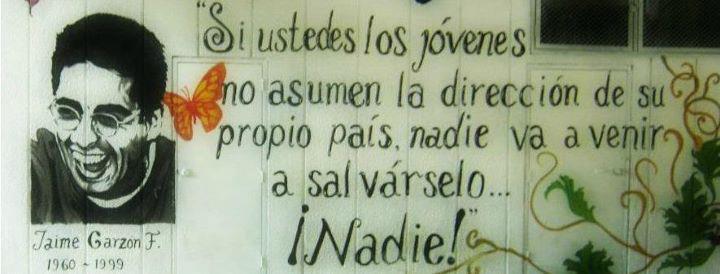 "Si ustedes los jóvenes
no asumen la dirección de su
propio país, nadie va a venir
a salvárselo...
¡Nadie!"
Jaime Garzon F.
1960 ~ 1999